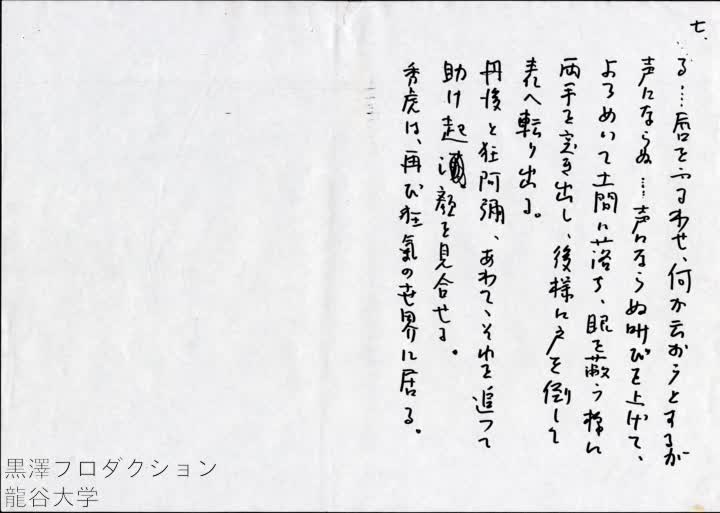 七、
る……唇をふるわせ、何か云おうとするが
声にならぬ……声にならぬ叫びを上げて、
よろめいて土間に落ち、眼を蔽う様に
両手を突き出し、後様に戸を倒して
表へ転り出る。
丹後と狂阿彌、あわて、それを追って
助け起し顔を見合せる。
秀虎は、再び狂氣の世界に居る。
黒澤プロダクション
龍谷大学